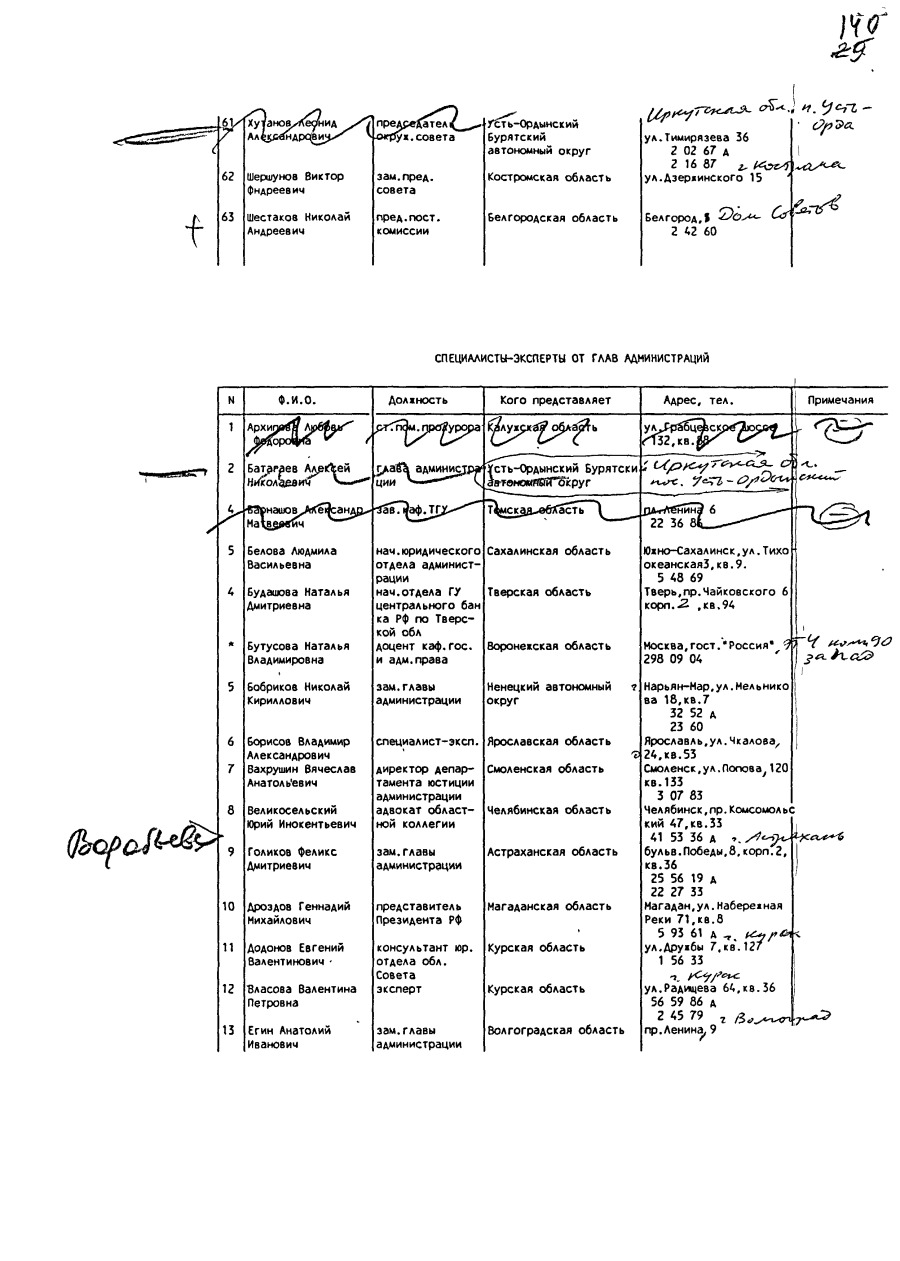 140
29
Иркутская обл. п. Усть-
Орда
61 Хутанов Леонид председатель Усть-Ордынский
Александрович окруж.совета Бурятский ул.Тимирязева 36
автономный округ 2 02 67 д
2 16 87 г. Кострома
62 Шершунов Виктор зам.пред. Костромская область ул.Дзержинского 15
Фндреевич совета
63 Шестаков Николай пред.пост. Белгородская область Белгород, Дом Советов
Андреевич комиссии 2 42 60
СПЕЦИАЛИСТЫ-ЭКСПЕРТЫ ОТ ГЛАВ АДМИНИСТРАЦИЙ
N Ф.И.О. Должность Кого представляет Адрес, тел. Примечания
1 Архипова Любовь ст.пом.прокурора Калужская область ул.Грабцевское шоссе
Федоровна 132,кв.88
2 Батагаев Алексей глава администра Усть-Ордынский Бурятский Иркутская обл.
Николаевич ции автономный округ пос. Усть-Ордынский
4 Варнашов Александр зав.каф.ТГУ Томская область пл.Ленина 6
Матвеевич 22 36 86
5 Белова Людмила нач.юридического Сахалинская область Южно-Сахалинск,ул.Тихо
Васильевна отдела админист- океанская3,кв.9.
рации 5 48 69
4 Будашова Наталья нач.отдела ГУ Тверская область Тверь,пр.Чайковского 6
Дмитриевна центрального бан корп.2 ,кв.94
ка РФ по Тверс-
кой обл
* Бутусова Наталья доцент каф.гос. Воронежская область Москва,гост."Россия", 4 ком.90
Владимировна и адм.права 298 09 04 запад
5 Бобриков Николай зам.главы Ненецкий автономный г Нарьян-Мар,ул.Мельнико
Кириллович администрации округ ва 18,кв.7
32 52 д
23 60
6 Борисов Владимир специалист-эксп. Ярославская область Ярославль,ул.Чкалова,
Александрович 24,кв.53
7 Вахрушин Вячеслав директор депар- Смоленская область Смоленск,ул.Попова,120
Анатоль'евич тамента юстиции кв.133
администрации 3 07 83
8 Великосельский адвокат област- Челябинская область Челябинск,пр.Комсомольс
Юрий Инокентьевич ной коллегии кий 47,кв.33
Воробьев 41 53 36 д г. Астрахань
9 Голиков Феликс зам.главы Астраханская область бульв.Победы,8,корп.2,
Дмитриевич администрации кв.36
25 56 19 д
22 27 33
10 Дроздов Геннадий представитель Магаданская область Магадан,ул.Набережная
Михайлович Президента РФ Реки 71,кв.8
5 93 61 д г. Курск
11 Додонов Евгений консультант юр. Курская область ул.Дружбы 7,кв.127
Валентинович отдела обл. 1 56 33
Совета г. Курск
12 Власова Валентина эксперт Курская область ул.Радищева 64,кв.36
Петровна 56 59 86 д
2 45 79 г Волгоград
13 Егин Анатолий зам.главы Волгоградская область пр.Ленина,9
Иванович администрации